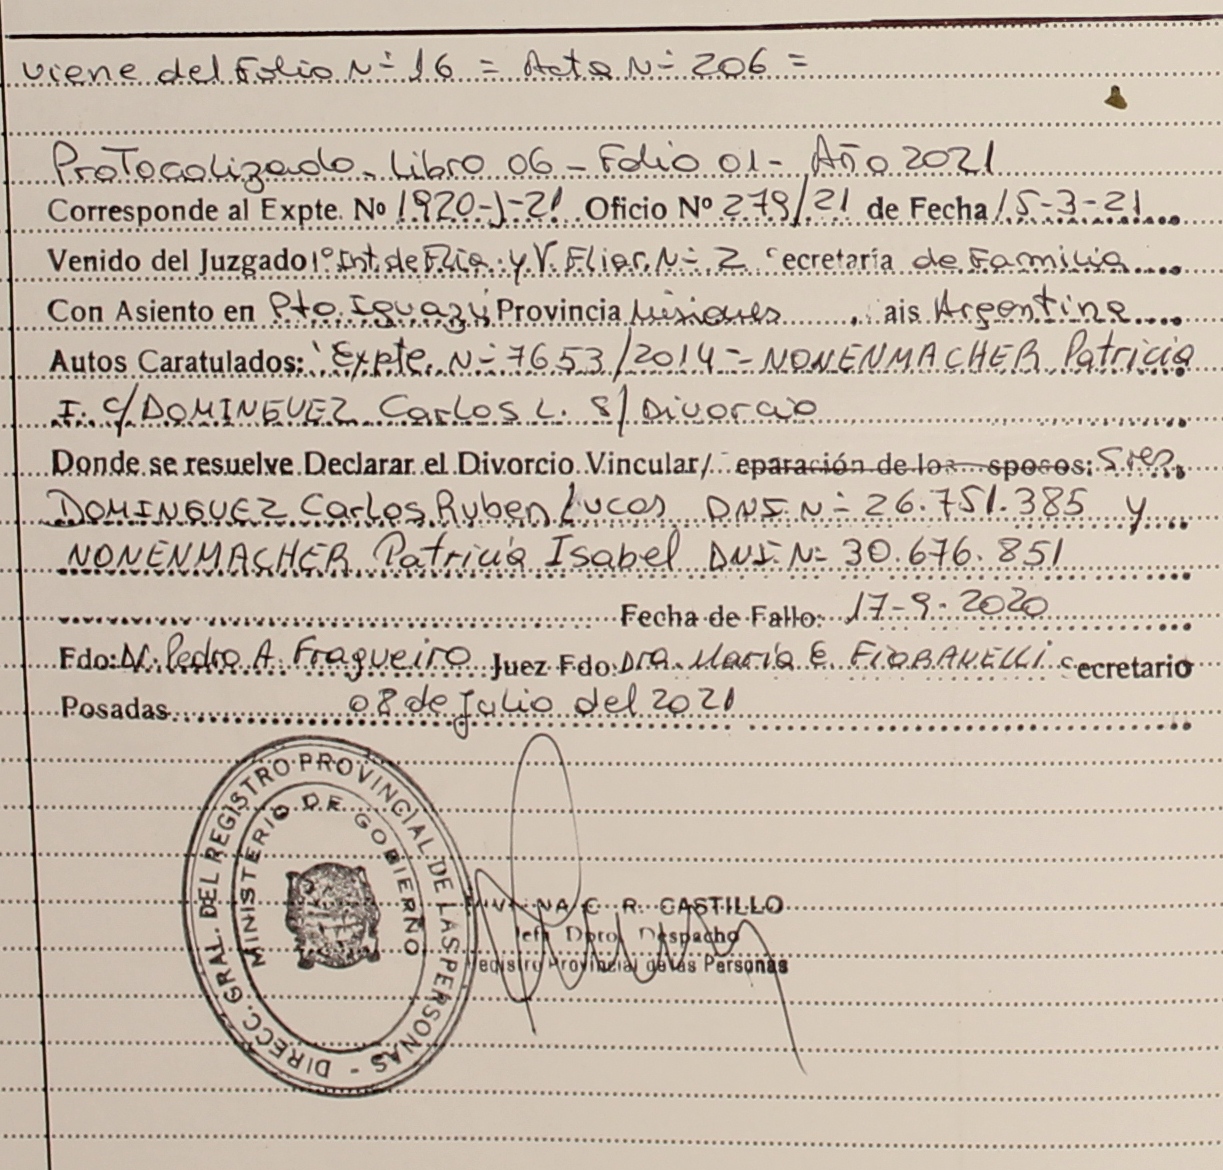 viene del Folio Nº 16 = Acta Nº 206 =
Protocolizado - Libro 06 - Folio 01 - Año 2021
Corresponde al Expte. Nº 1920-J-21 Oficio Nº 279/21 de Fecha 15-3-21
Venido del Juzgado 1º Inst. de Flia. y V. Fliar. Nº 2 ecretaría de Familia
Con Asiento en Pto. Iguazú Provincia Misiones ais Argentina
Autos Caratulados: "Expte. Nº 7653/2014 - NONENMACHER Patricia
I. c/ DOMINGUEZ Carlos L. S/ Divorcio
Donde se resuelve Declarar el Divorcio Vincular/ eparación de los sposos: Sres.
DOMINGUEZ Carlos Ruben Lucas DNI. Nº 26.751.385 y
NONENMACHER Patricia Isabel DNI. Nº 30.676.851
Fecha de Fallo: 17-9-2020
Fdo: Dr. Pedro A. Fragueiro Juez Fdo: Dra. María E. FIORANELLI ecretario
Posadas 08 de Julio del 2021
DIRECC. GRAL. DEL REGISTRO PROVINCIAL DE LAS PERSONAS -
MINISTERIO DE GOBIERNO
NA C. R. CASTILLO
Jefa Dpto. Despacho
Registro Provincial de las Personas